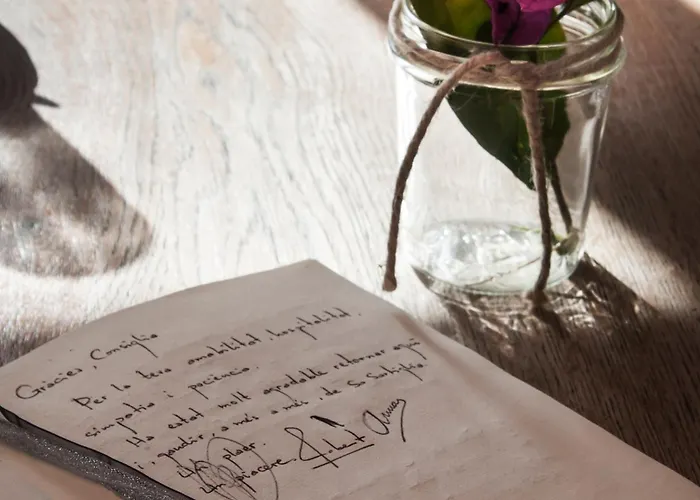 Gracies, Consiglia
Per la teva amabilitat, hospitalitat,
simpatia i paciència.
Ha estat molt agradable retornar aquí
i, gaudir, a més a més, de Sa Sontiglia.
Un plaer.
Un piacere.